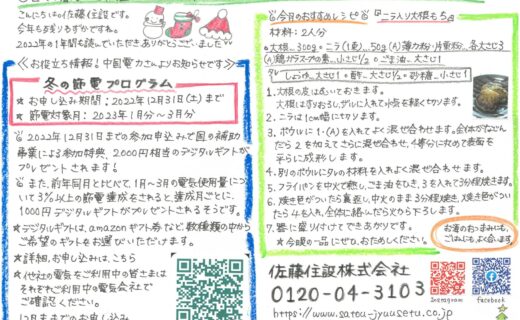 こんにちは∞佐藤住設です。
今年も残りわずかですね。
2022年の1年間も読んでいただきありがとうございました
≪お役立ち情報！中国電力さんよりお知らせです≫
冬の節電プログラム
★お申し込み期間：2022年12月31日(土)まで
★節電対象月：2023年1月分～3月分
2022年12月31日までの参加申込みで国の補助
事業による参加特典、2,000円相当のデジタルギフトが
プレゼントされます！
また、前年同月と比べて、1月～3月の電気使用量に
ついて3%以上の節電達成をされると、達成月ごとに、
1000円デジタルギフトがプレゼントされるそうです。
★デジタルギフトは、amazonギフト券など数種類の中から
ご希望のギフトをお選びいただけます。
★詳細、お申し込みは、こちら
★他社の電気をご利用中の皆さまは
それぞれご利用中の電気会社で
ご確認ください。
12月までのお申し込み
◇今日のおすすめレシピ ニラ入り大根もち
材料：2人分
・大根…300g ・ニラ(1束)…50g (A)薄力粉・片栗粉…各大さじ3
(A)鶏ガラスープの素…小さじ1/2 ・ごま油…大さじ1
タレ しょうゆ…大さじ1 ・酢…大さじ1/2 ・砂糖…小さじ1
1. 大根の皮はむいておきます。
大根はすりおろし、ザルに入れて水気を軽く切ります。
2. ニラは1cm幅に切ります。
3. ボウルに1・(A)を入れてよく混ぜ合わせます。全体がなじん
だら2を加えてさらに混ぜ合わせ、4等分にわけて表面を
平らに成形します。
4. 別のボウルにタレの材料を入れよく混ぜ合わせます。
5. フライパンを中火で熱し、ごま油をひき、3を入れて3分程焼きます。
6. 焼き色がついたら裏返し、中火のまま3分程焼き、焼き色がつい
たら4を入れ、全体に絡んだら火から下ろします。
7. 器に盛り付けてできあがりです。
★今晩の一品にぜひ、おためしください。
お酒のおつまみにも、
ごはんにも、よく合います。
佐藤住設株式会社
0120-04-3103
https://www.satou-jyuusetu.co.jp
Instagram
facebook